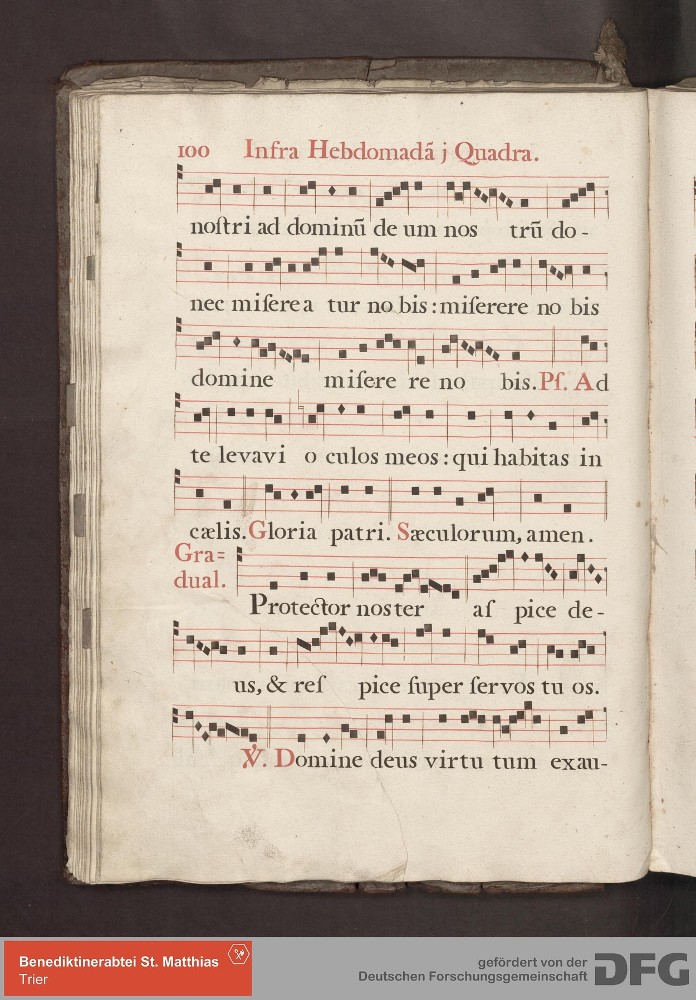 100 Infra Hebdomadã j Quadra.
noſtri ad dominũ de um nos trũ do-
nec miſere a tur no bis : miſerere no bis
domine miſere re no bis. Pſ. Ad
te levavi o culos meos : qui habitas in
cælis. Gloria patri. Sæculorum, amen.
Gra=
dual.
Protector noster aſ pice de-
us, & reſ pice ſuper ſervos tu os.
℣. Domine deus virtu tum exau-
Benediktinerabtei St. Matthias
Trier
gefördert von der
Deutschen Forschungsgemeinschaft
DFG